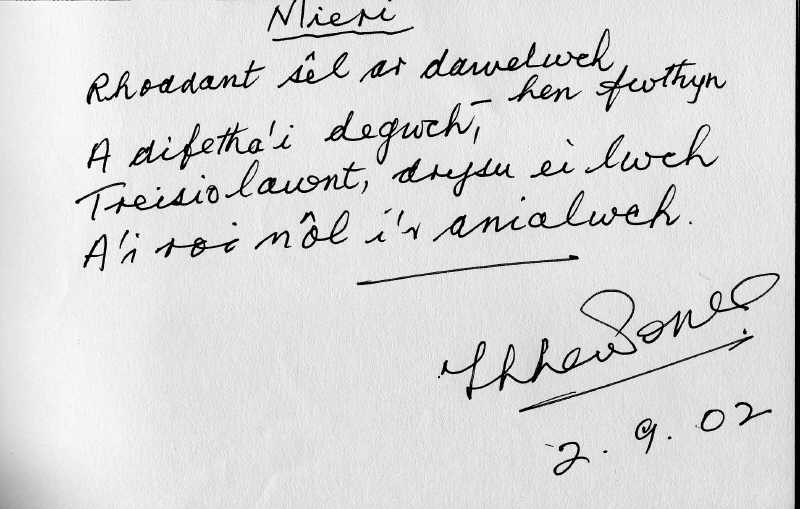 Mieri
Rhoddant sêl ar dawelwch
A difetha'i degwch, – hen fwthyn
Treisiolawnt, drysu ei lwch
A'i roi nôl i'r anialwch.
Jones
2.9.02